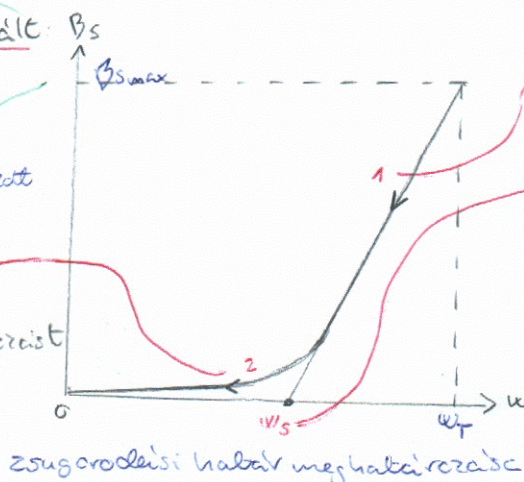 ált Bs
Bsmax
1
2
0
Ws
WT
zsugorodási határ meghatározása